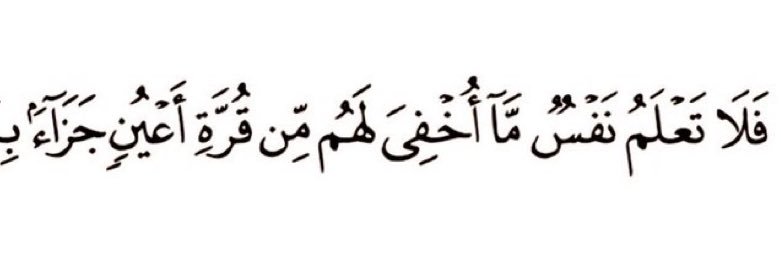 فَلَا تَعْلَمُ نَفْسٌ مَّآ أُخْفِىَ لَهُم مِّن قُرَّةِ أَعْيُنٍ جَزَآءًۢ